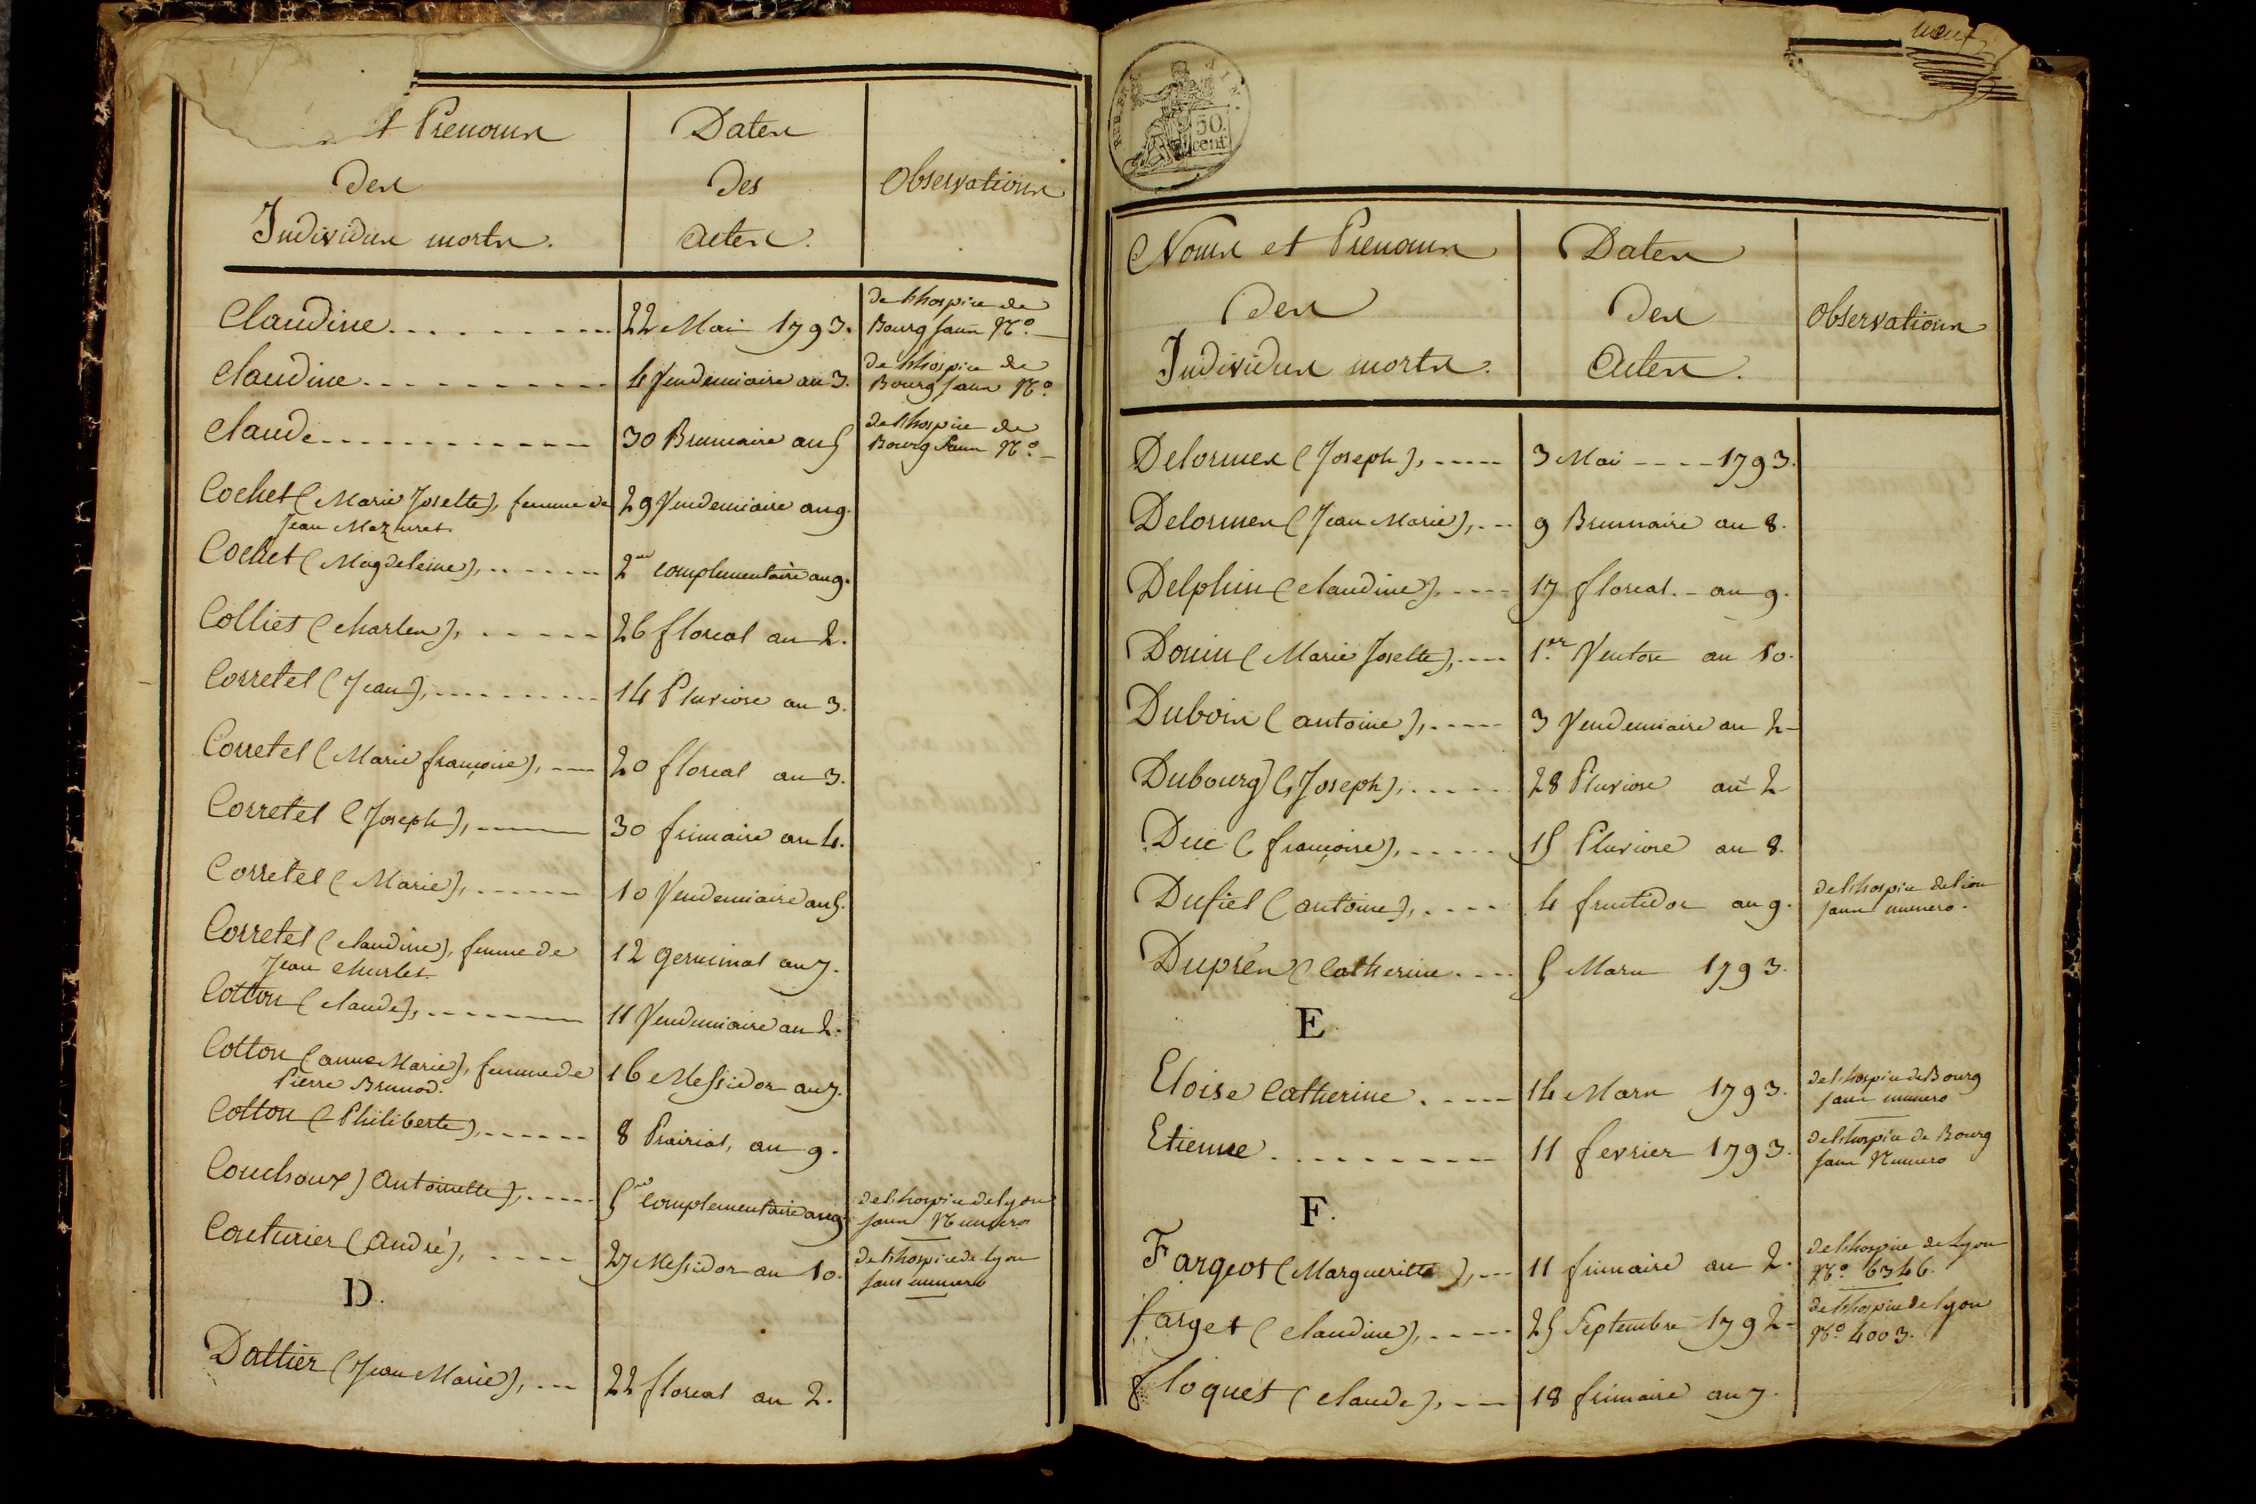 et Prenoms
des
Individus morts.
Dates
des
actes.
Observations
Claudine
22 Mai 1793.
de l'hospice de
Bourg sans N.o
Claudine
4 Vendemiaire an 3.
de l'hospice de
Bourg sans N.o
Claude
30 Brumaire an 5
de l'hospice de
Bourg sans N.o
Cochet (Marie Josette), femme de
Jean Mazuret
29 Vendemiaire an 9.
Cochet (Magdeleine),
2me complementaire an 9.
Colliet (charles),
26 floreal an 2.
Corretel (Jean),
14 Pluviose an 3.
Corretel (Marie françoise),
20 floreal an 3.
Corretel (Joseph),
30 frimaire an 4.
Corretel (Marie),
10 Vendemiaire an 5.
Corretel (claudine), femme de
Jean Churlet
12 germinal an 7.
Cotton (claude),
11 Vendemiaire an 2.
Cotton (anne Marie), femme de
Pierre Brunod.
16 Messidor an 7.
Cotton (Philiberte),
8 Prairial, an 9.
Couchoux) antoinette),
5me complementaire an 9.
de l'hospice de lyon
sans Numero
Couturier (André),
27 Messidor an 10.
de l'hospice de lyon
sans numero
D.
Dattier (Jean Marie),
22 floreal an 2.
neuf
50.
cent
Noms et Prenoms
des
Individus morts.
Dates
des
actes.
Observations
Delormes (Joseph),
3 Mai 1793.
Delormes (Jean Marie),
9 Brumaire an 8.
Delphin (claudine),
17 floreal. an 9.
Donin (Marie Josette),
1.er Ventose an 10.
Dubois (antoine),
3 Vendemiaire an 2
Dubourg (Joseph),
28 Pluviose an 2
Duc (françoise),
15 Pluviose an 8.
Dufiel (antoine),
4 fructidor an 9.
de l'hospice de lion
sans numero.
Duprés (Catherine
5 Mars 1793.
E
Eloise Catherine
14 Mars 1793.
de l'hospice de Bourg
sans numero
Etienne
11 fevrier 1793.
de l'hospice de Bourg
sans Numero
F.
Fargeot (Margueritte),
11 frimaire an 2.
de l'hospice de Lyon
N.o 6346.
farget (claudine),
25 Septembre 1792
de l'hospice de lyon
N.o 4003.
floquet (claude),
18 frimaire an 7.